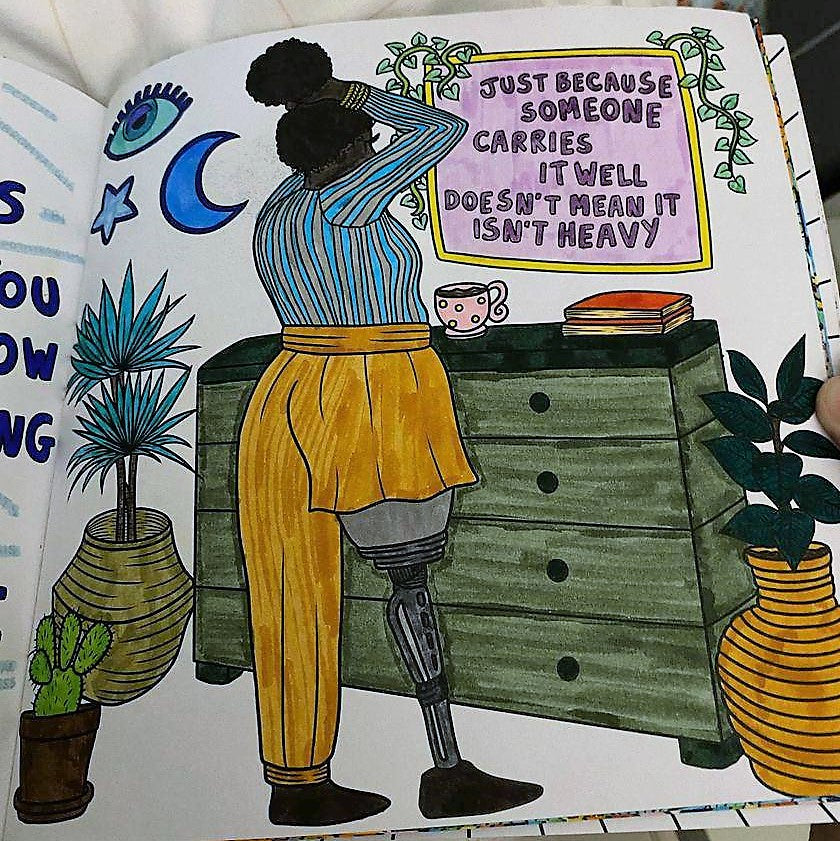 S
YOU
OW
NG
JUST BECAUSE
SOMEONE
CARRIES
IT WELL
DOESN'T MEAN IT
ISN'T HEAVY